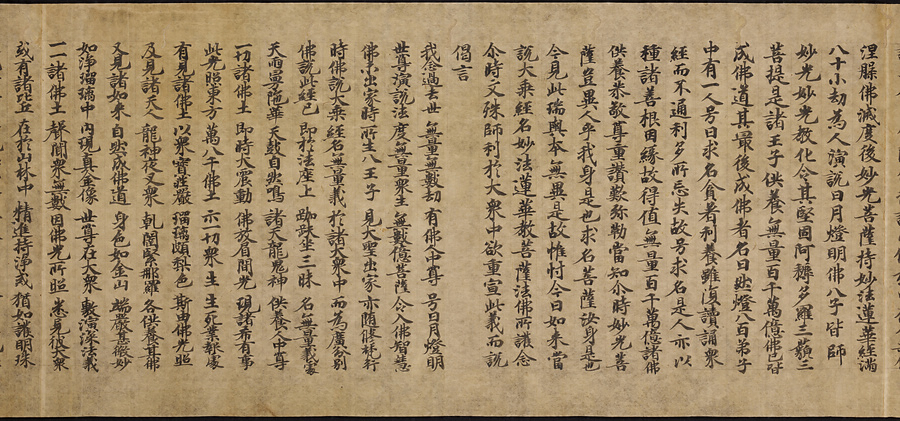 涅脲佛滅度後妙光菩薩持妙法蓮華經滿
八十小劫為人演說日月燈明佛八子皆師
妙光妙光教化令其堅固阿耨多羅三藐三
菩提是諸王子供養無量百千萬億佛已皆
成佛道其最後成佛者名曰燃燈八百弟子
中有一人号曰求名貪著利養雖復讀誦衆
經而不通利多所忘失故号求名是人亦以
種諸善根因緣故得值無量百千萬億諸佛
供養恭敬尊重讚歎弥勒當知尒時妙光菩
薩豈異人乎我身是也求名菩薩汝身是也
今見此瑞與本無異是故惟忖今日如來當
說大乘經名妙法蓮華教菩薩法佛所護念
尒時文殊師利於大衆中欲重宣此義而說
偈言
我念過去世 無量無數劫 有佛人中尊 号日月燈明
世尊演說法 度無量衆生 無數億菩薩 令入佛智慧
佛未出家時 所生八王子 見大聖出家 亦随修梵行
時佛說大乘 經名無量義 於諸大衆中 而為廣分別
佛說此經已 即於法座上 跏趺坐三昧 名無量義處
天雨曼陁華 天鼓自然鳴 諸天龍鬼神 供養人中尊
一切諸佛土 即時大震動 佛放眉間光 現諸希有事
此光照東方 萬八千佛土 示一切衆生 生死業報處
有見諸佛土 以衆寶莊嚴 瑠璃頗梨色 斯由佛光照
及見諸天人 龍神夜叉衆 乹闥緊那羅 各供養其佛
又見諸如來 自然成佛道 身色如金山 端嚴甚微妙
如淨瑠璃中 內現真金像 世尊在大衆 敷演深法義
一一諸佛土 聲聞衆無數 因佛光所照 悉見彼大衆
或有諸比丘 在於山林中 精進持淨戒 猶如護明珠